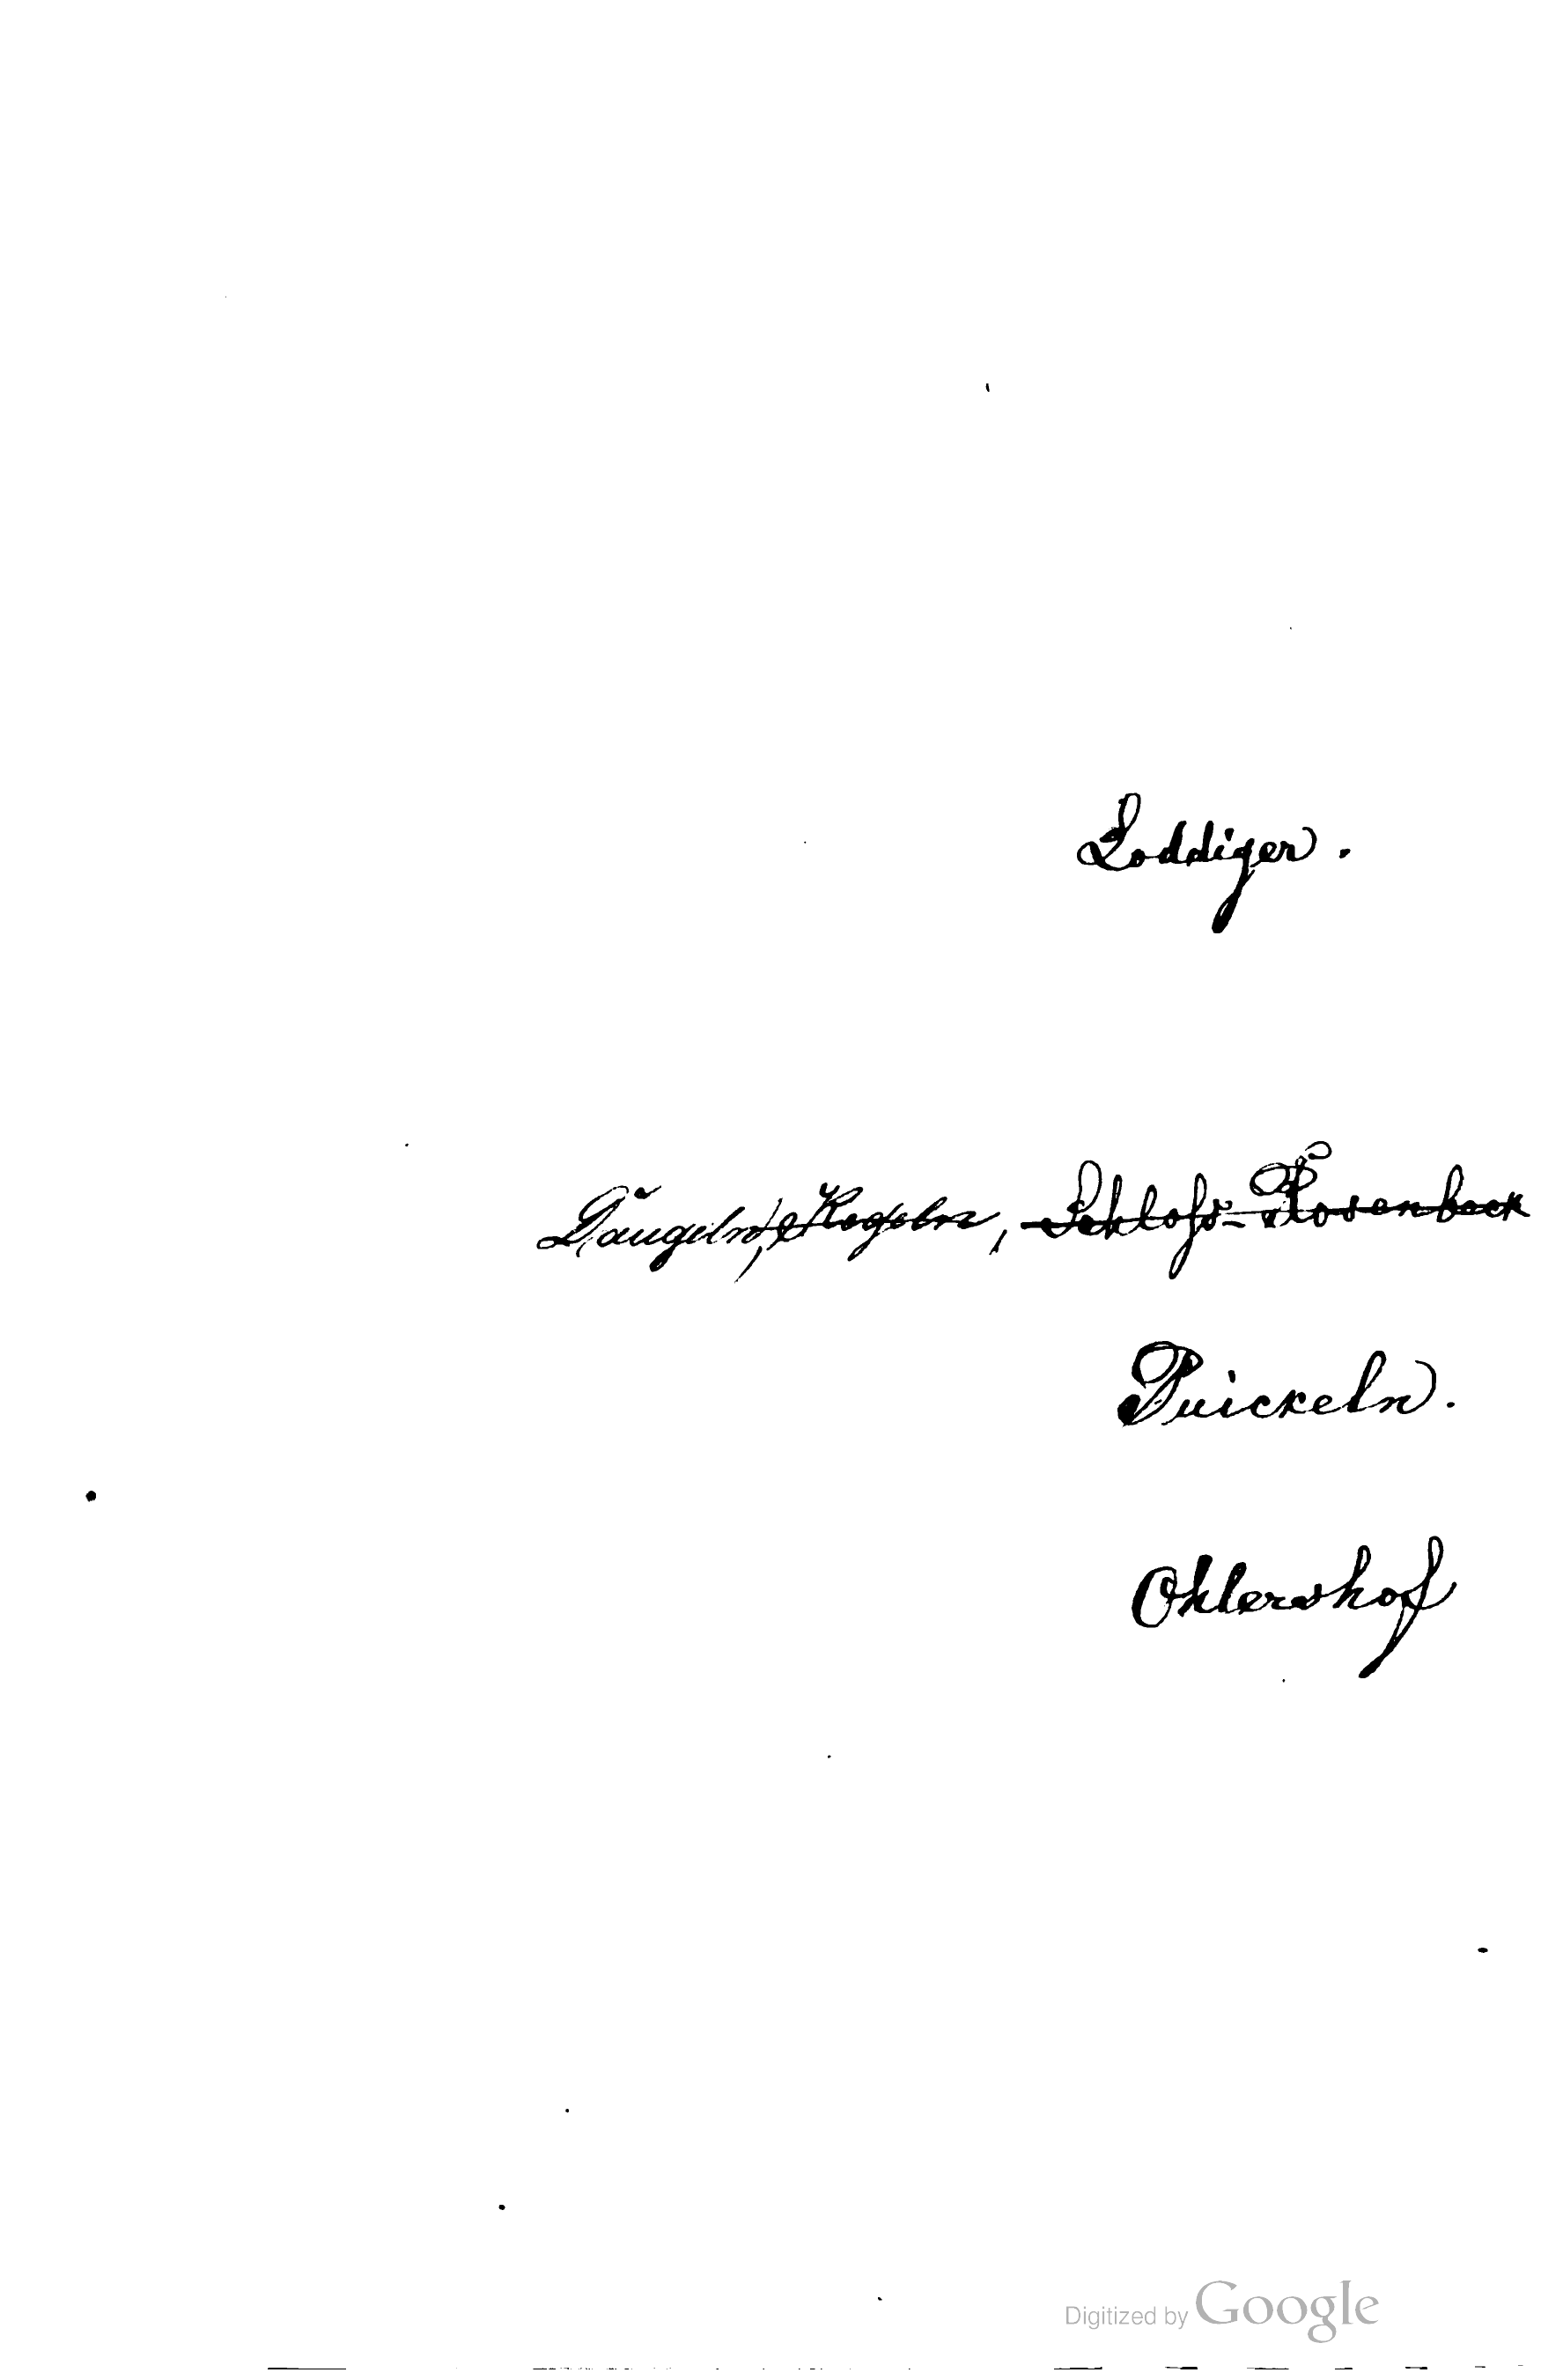 Loddiger.
Daugeln, Kegeln, Schloſs-Rosenbeck
Puickeln.
Ohlershof
Digitized by Google